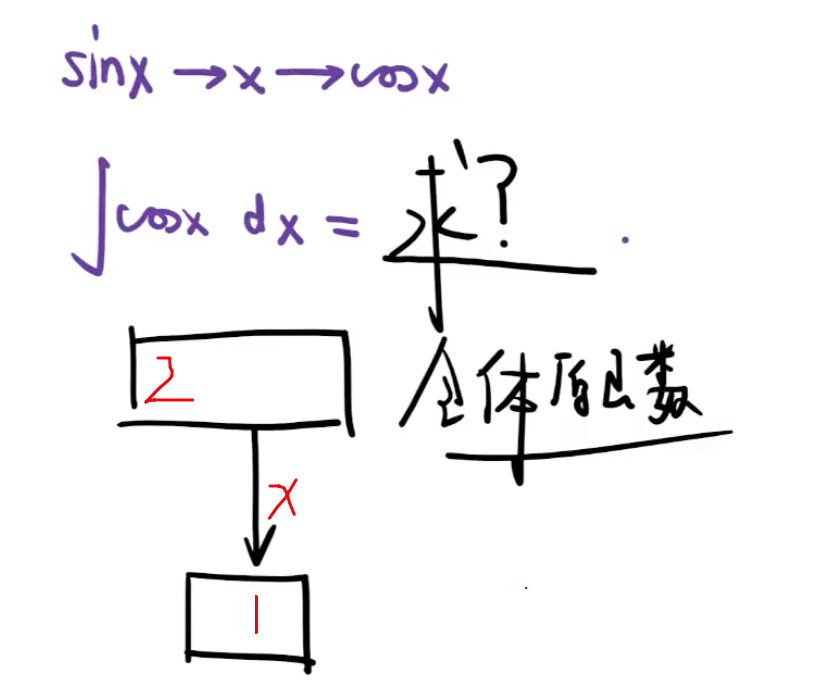 sinx → x → cosx
∫cosx dx = 求?
全体原函数
2
x
1